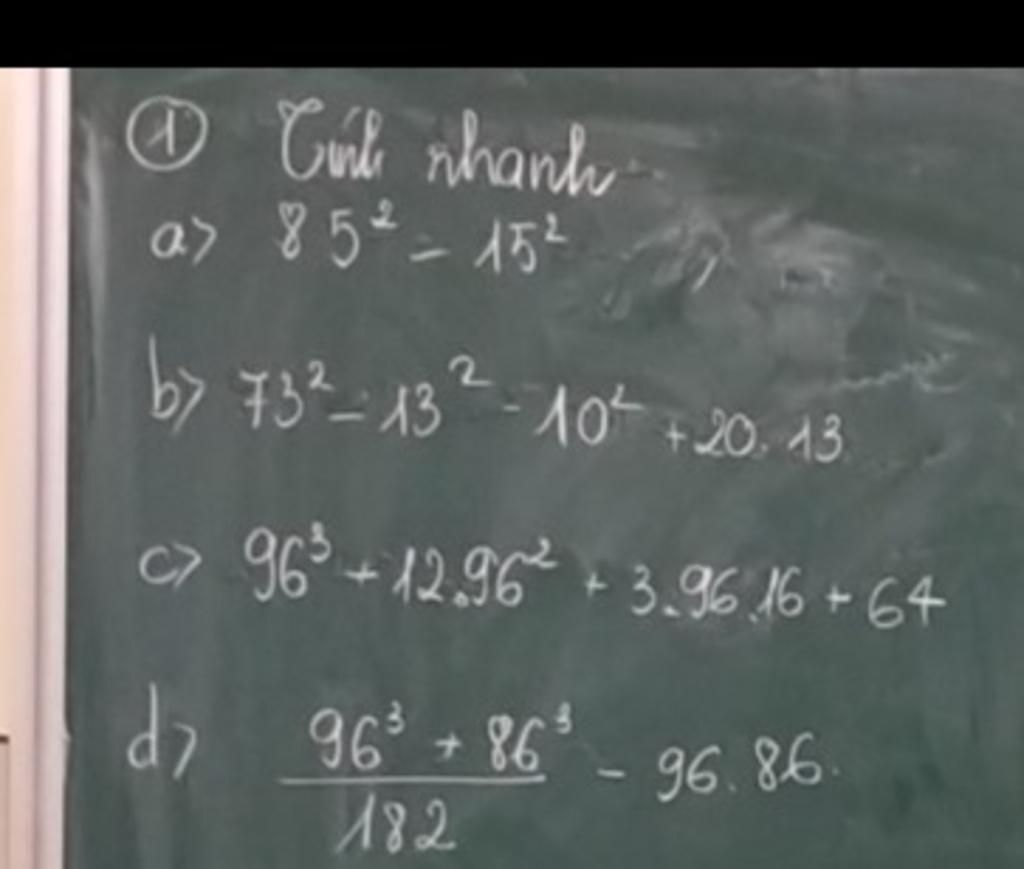 ① Tính nhanh
a> 85² - 15²
b> 73² - 13² - 10² + 20.13
c> 96³ + 12.96² + 3.96.16 + 64
d> 96³ + 86³ / 182 - 96.86.